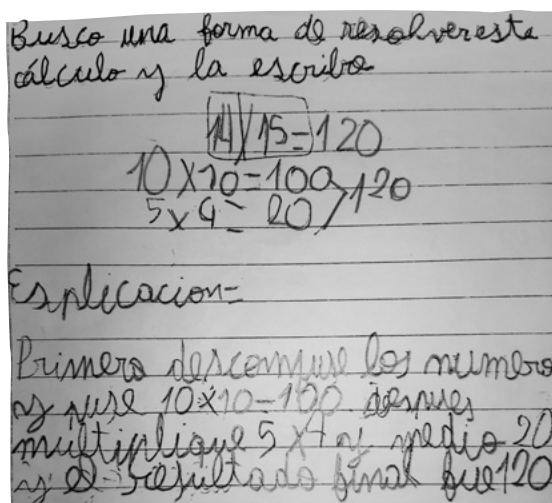 Busco una forma de resolver esta
cálculo y la escribo
14 x 15 = 120
10 x 10 = 100
5 x 4 = 20
120
Esplicacion =
Primero descompuse los numero
y puse 10 x 10 = 100 despues
multiplique 5 x 4 y medio 20
y el resultado final fue 120